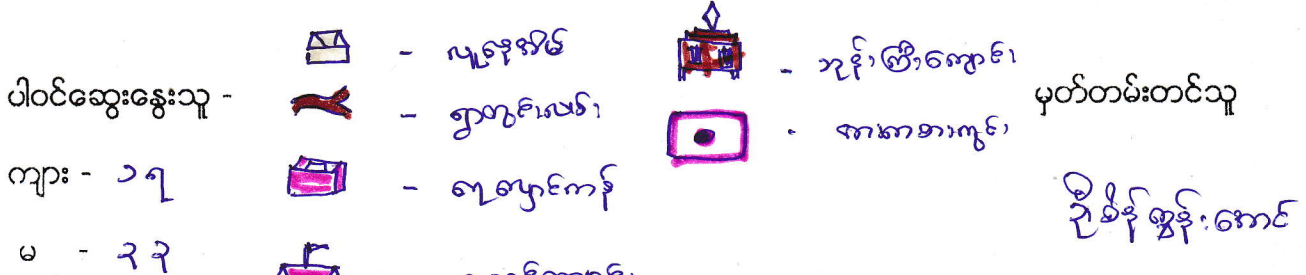 ပါဝင်ဆွေးနွေးသူ -
ကျား - ၁၅
မ - ၃၃
- လူနေအိမ်
- ရွာတွင်းလမ်း
- ရေလှောင်ကန်
- ဘုန်းကြီးကျောင်း
- အားကစားကွင်း
မှတ်တမ်းတင်သူ
ဦးစိန်ထွန်းအောင်